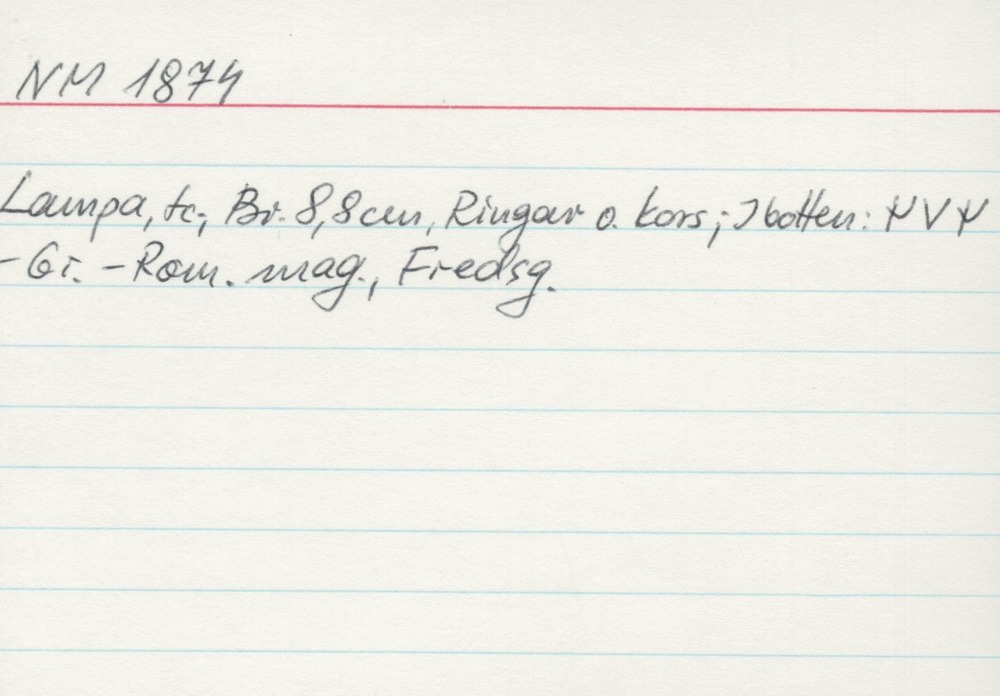 NM 1874
Lampa, tc; Br. 8,8 cm, Ringar o. kors; I botten: ΨVΨ
- Gr. - Rom. mag., Fredsg.